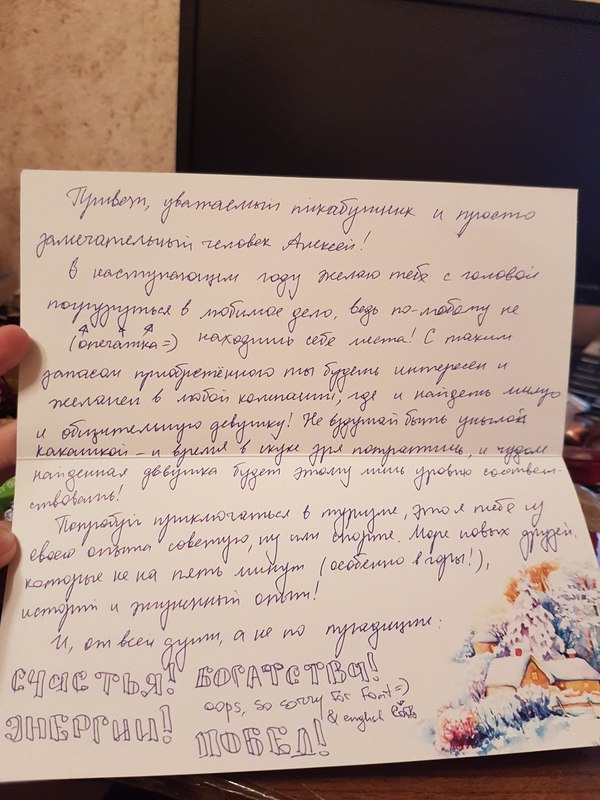 Привет, уважаемый пикабушник и просто
замечательный человек Алексей!
В наступающем году желаю тебе с головой
погрузиться в любимое дело, ведь по-любому не
(опечатка=) находишь себе места! С таким
запасом приобретённого ты будешь интересен и
желанен в любой компании, где и найдешь милую
и общительную девушку! Не вздумай быть унылой
какашкой - и время в скуке зря потратишь, и чудом
найденная девушка будет этому лишь уровню соответ-
ствовать!
Попробуй приключаться в туризме, это я тебе из
своего опыта советую, ну или спорте. Море новых друзей,
которые не на пять минут (особенно в горы!),
историй и жизненный опыт!
И, от всей души, а не по традиции:
СЧАСТЬЯ! БОГАТСТВА!
oops, so sorry for font=)
& english
ЭНЕРГИИ! ПОБЕД!